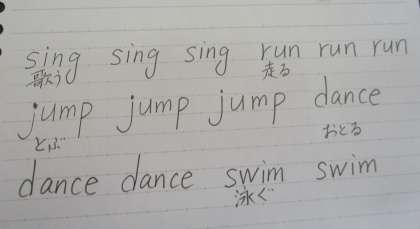 sing sing sing run run run
歌う 走る
jump jump jump dance
とぶ おどる
dance dance swim swim
泳ぐ